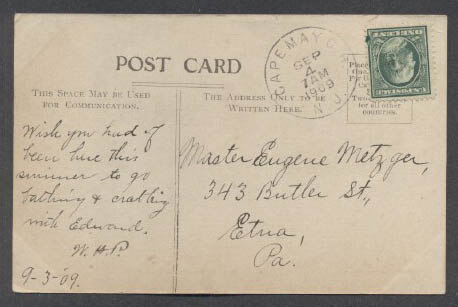 POST CARD
THIS SPACE MAY BE USED
FOR COMMUNICATION.
THE ADDRESS ONLY TO BE
WRITTEN HERE.
CAPE MAY
SEP
4
7 AM
1909
N.J.
ONE CENT
Place
One
for all other
countries.
Wish you had of
been here this
summer to go
bathing & crabbing
with Edward.
W.H.P.
9-3-'09.
Master Eugene Metzger,
343 Butler St.,
Etna,
Pa.